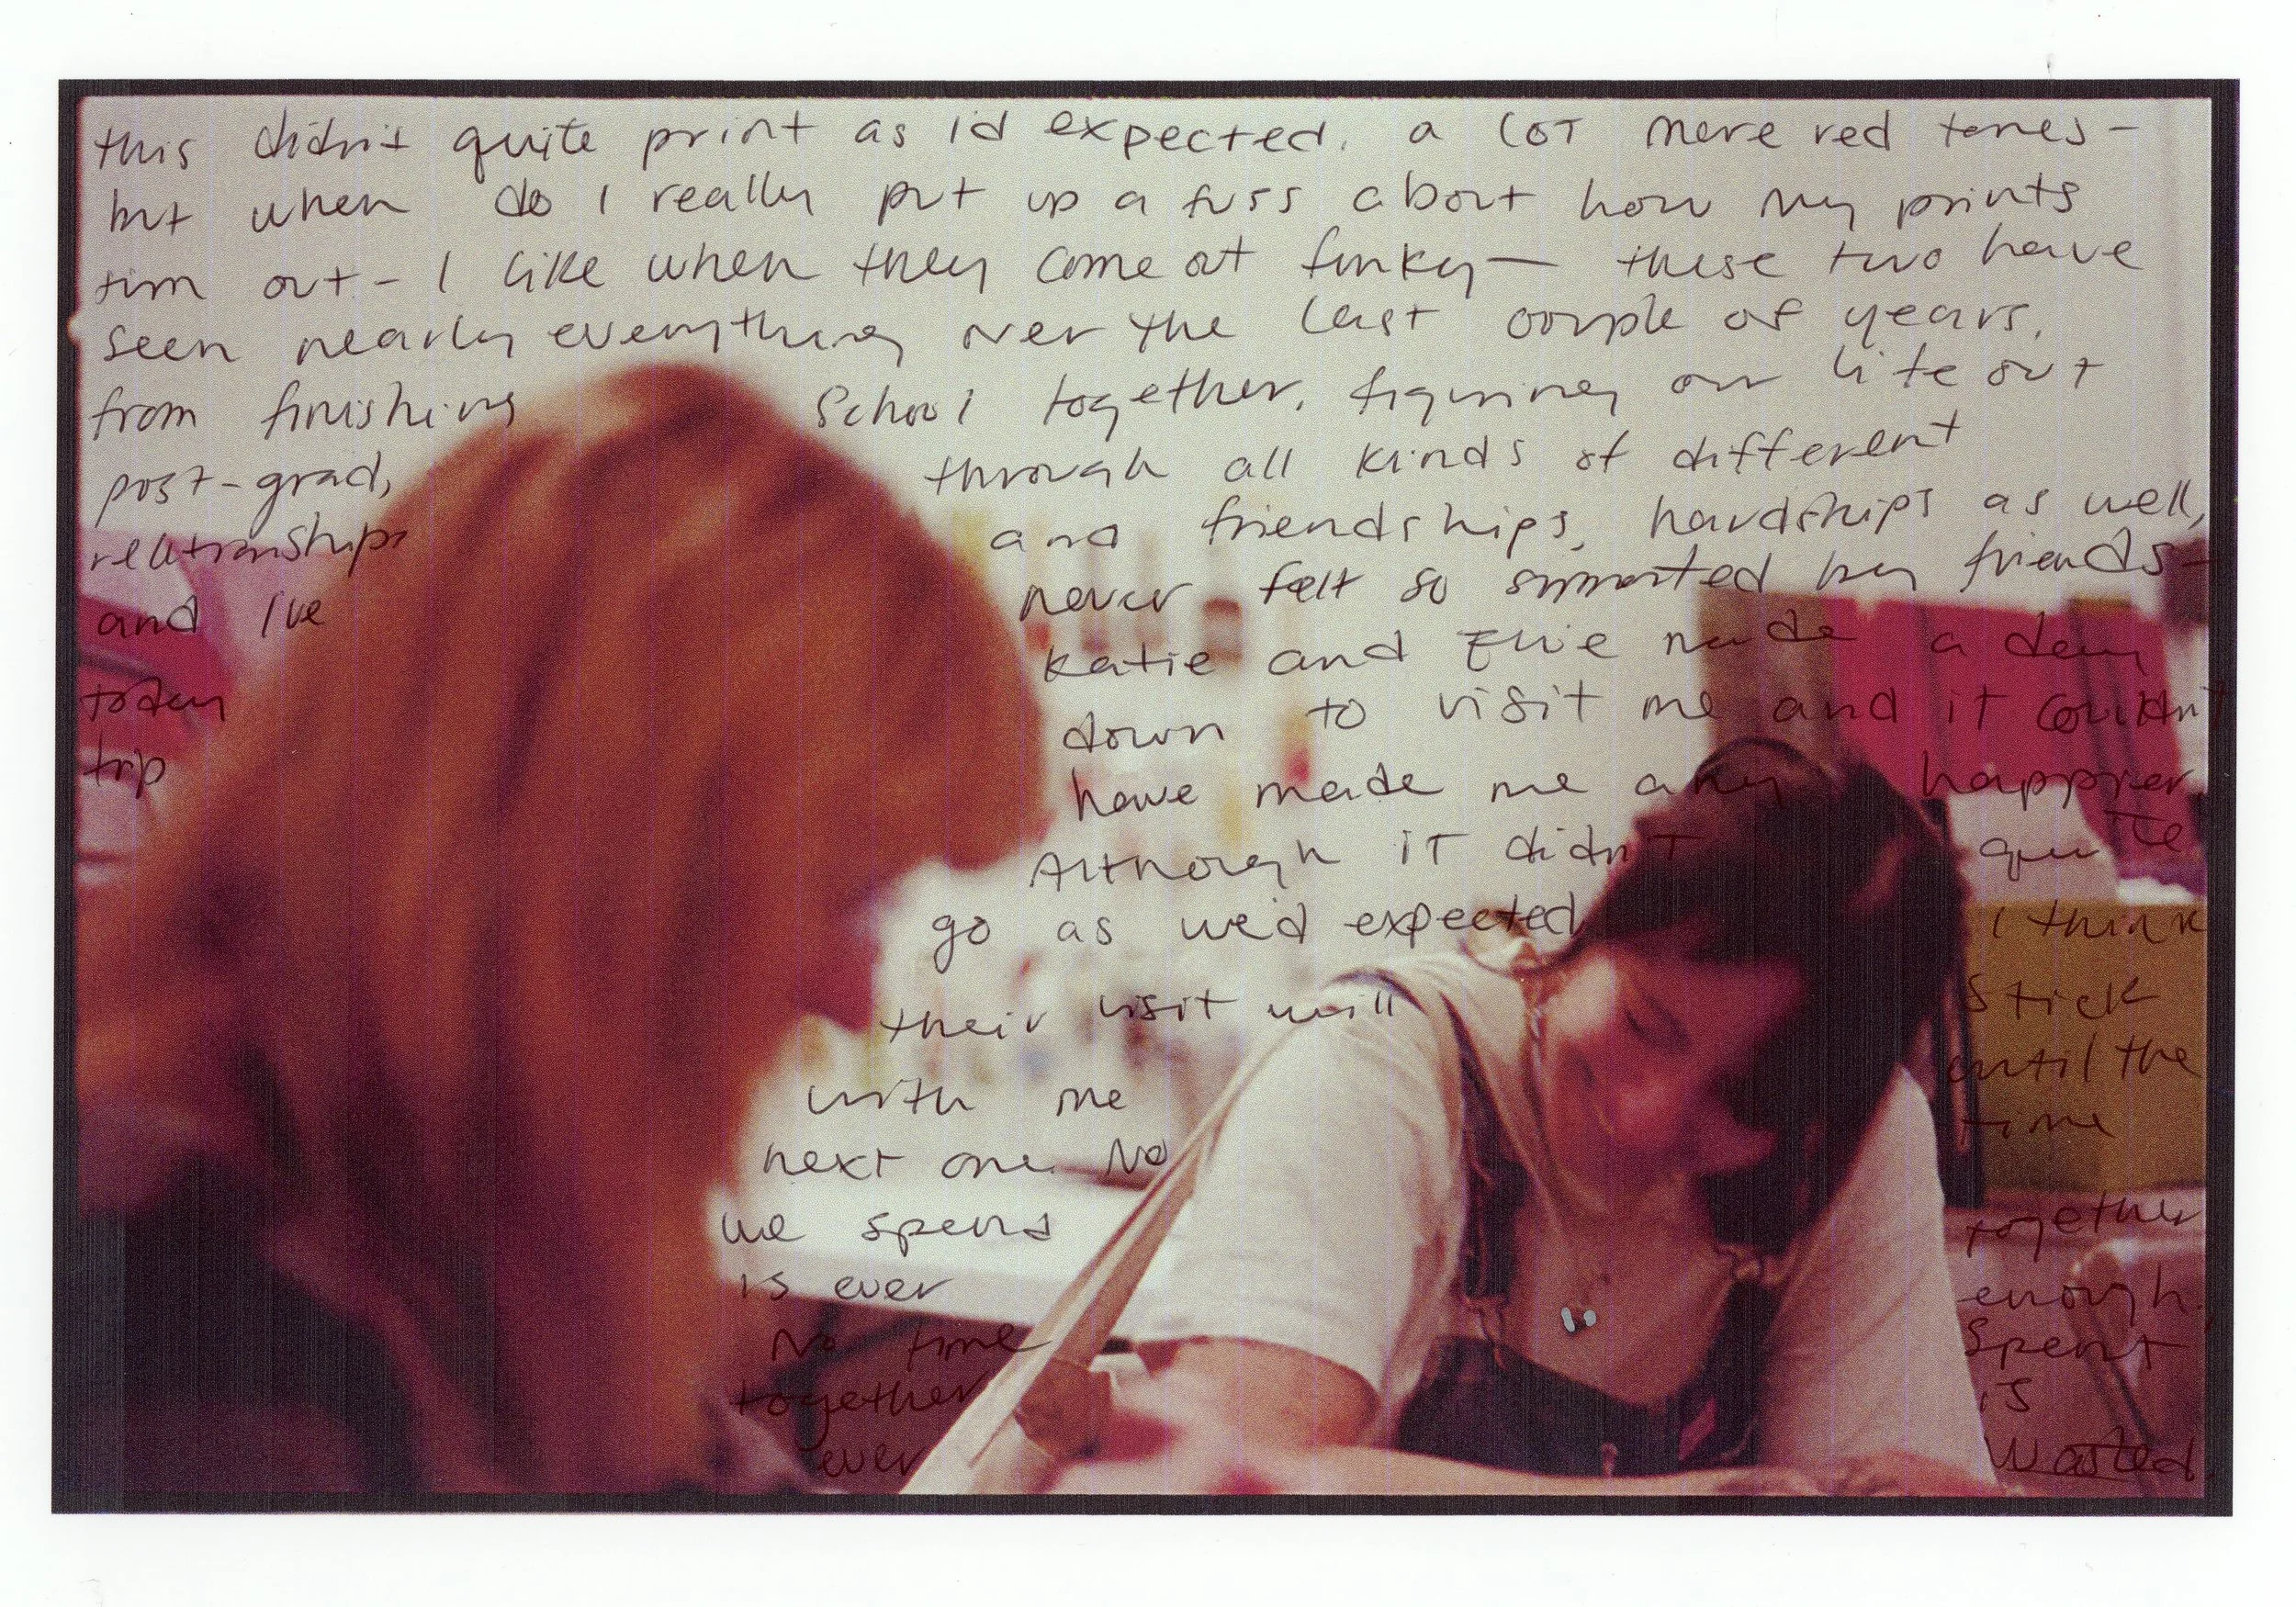 this didn't quite print as i'd expected. a lot more red tones-
but when do i really put up a fuss about how my prints
turn out - I like when they come out funky- these two have
seen nearly everything over the last couple of years.
from finishing school together, figuring our life out
post-grad, through all kinds of different
relationships and friendships, hardships as well,
and I've never felt so supported by friends-
today Katie and Evie made a day
trip down to visit me and it couldn't
have made me any happier.
Although it didn't quite
go as we'd expected I think
their visit will stick
with me until the
next one. No time
we spend together
is ever enough.
No time spent
together is
ever wasted.